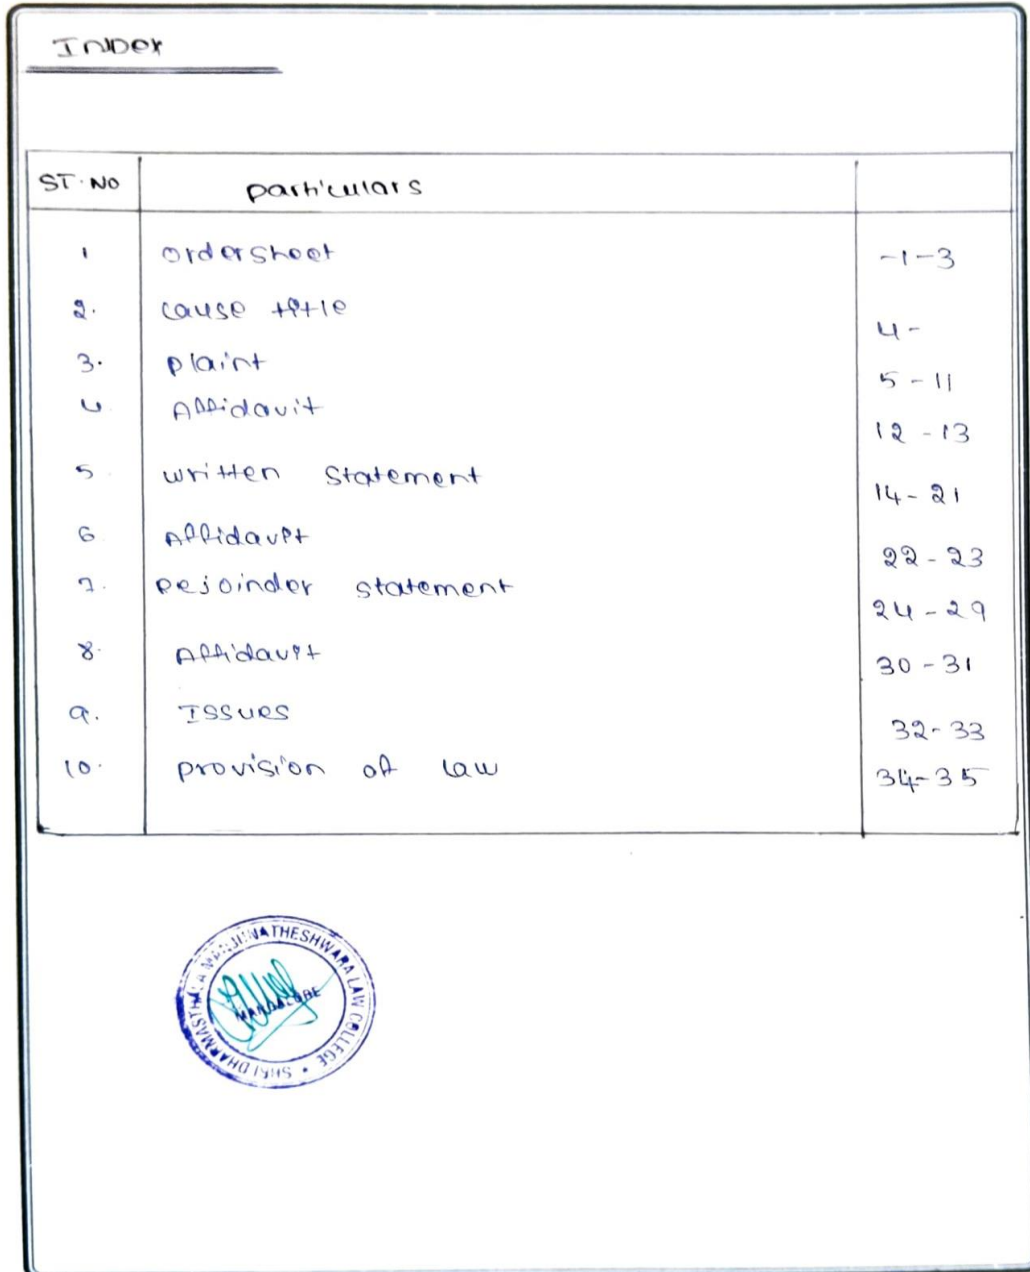 Index
ST. NO particulars
1 ordersheet -1-3
2. cause title 4-
3. plaint 5-11
4 Affidavit 12-13
5. written statement 14-21
6. Affidavit 22-23
7. Rejoinder statement 24-29
8. Affidavit 30-31
9. Issues 32-33
10. provision of law 34-35
SHRI DHARMASTHALA MANJUNATHESHWARA LAW COLLEGE
MANGALORE